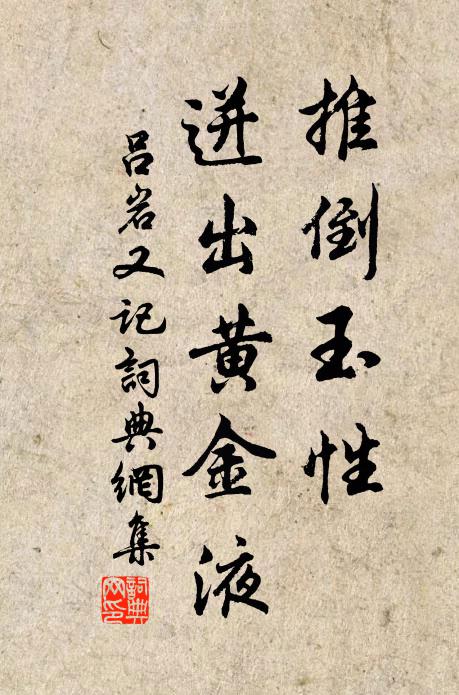 推倒玉性
迸出黄金液
吕岩又记詞典網集
詞典网印